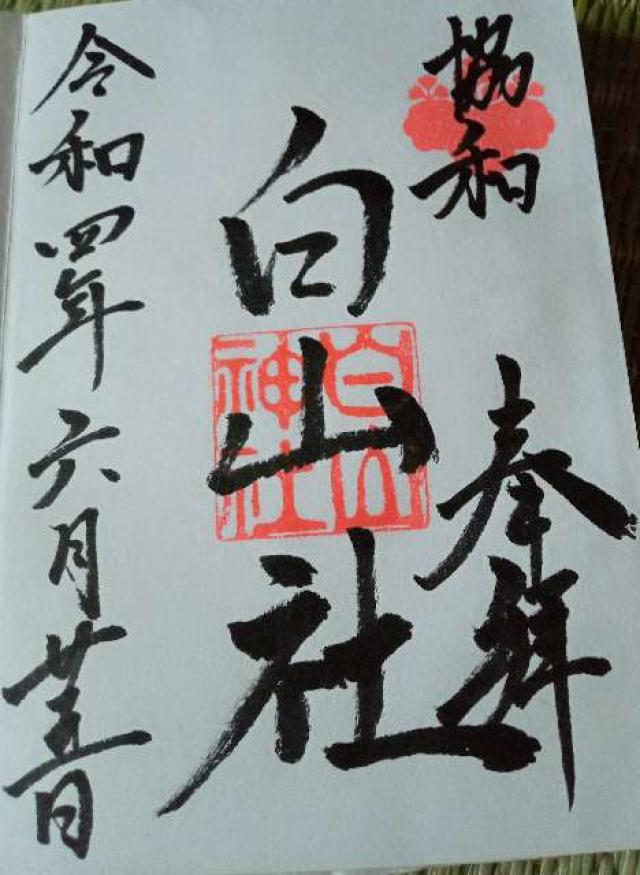 協和
奉拝
白山社
白山
神社
令和四年六月廿五日